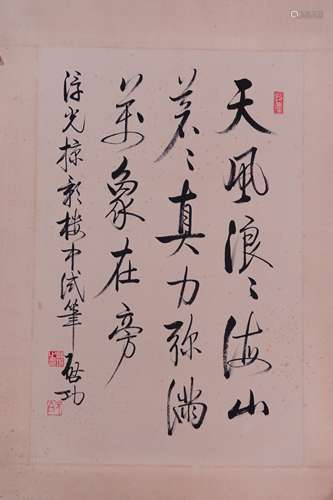 天風浪々海山
蒼々真力弥滿
萬象在旁
浮光掠影樓中試筆 啟功